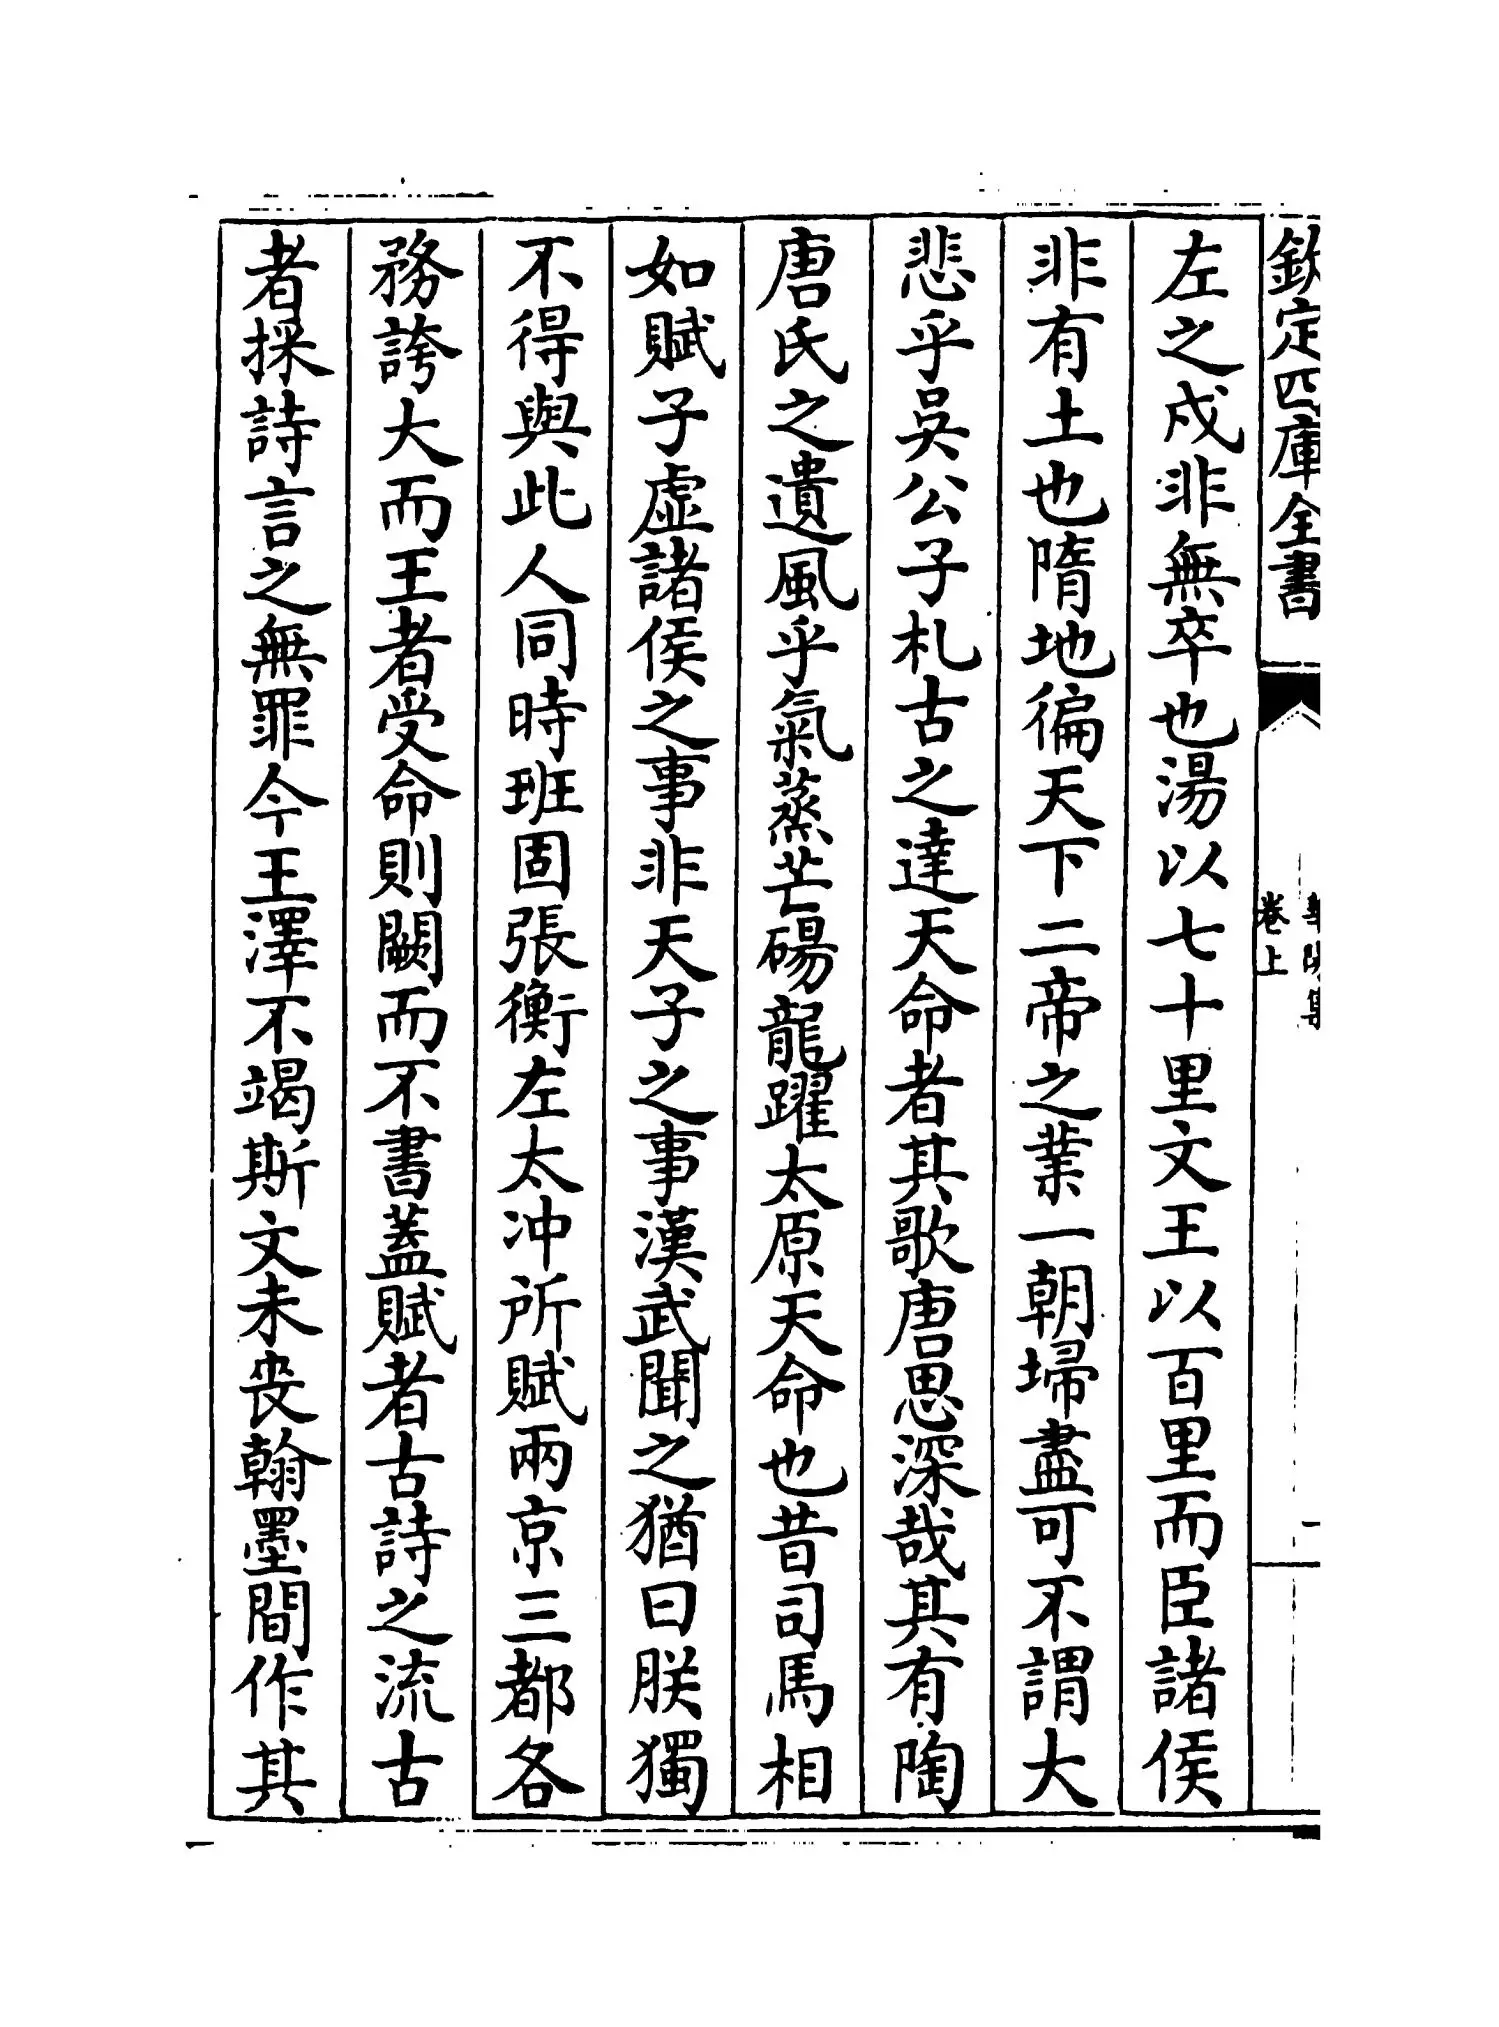 欽定四庫全書
卷上
左之戍非無卒也湯以七十里文王以百里而臣諸侯
非有土也隋地徧天下二帝之業一朝埽盡可不謂大
悲乎吳公子札古之達天命者其歌唐思深哉其有陶
唐氏之遺風乎氣蒸芒碭龍躍太原天命也昔司馬相
如賦子虛諸侯之事非天子之事漢武聞之猶曰朕獨
不得與此人同時班固張衡左太冲所賦兩京三都各
務誇大而王者受命則闕而不書蓋賦者古詩之流古
者採詩言之無罪今王澤不竭斯文未喪翰墨間作其